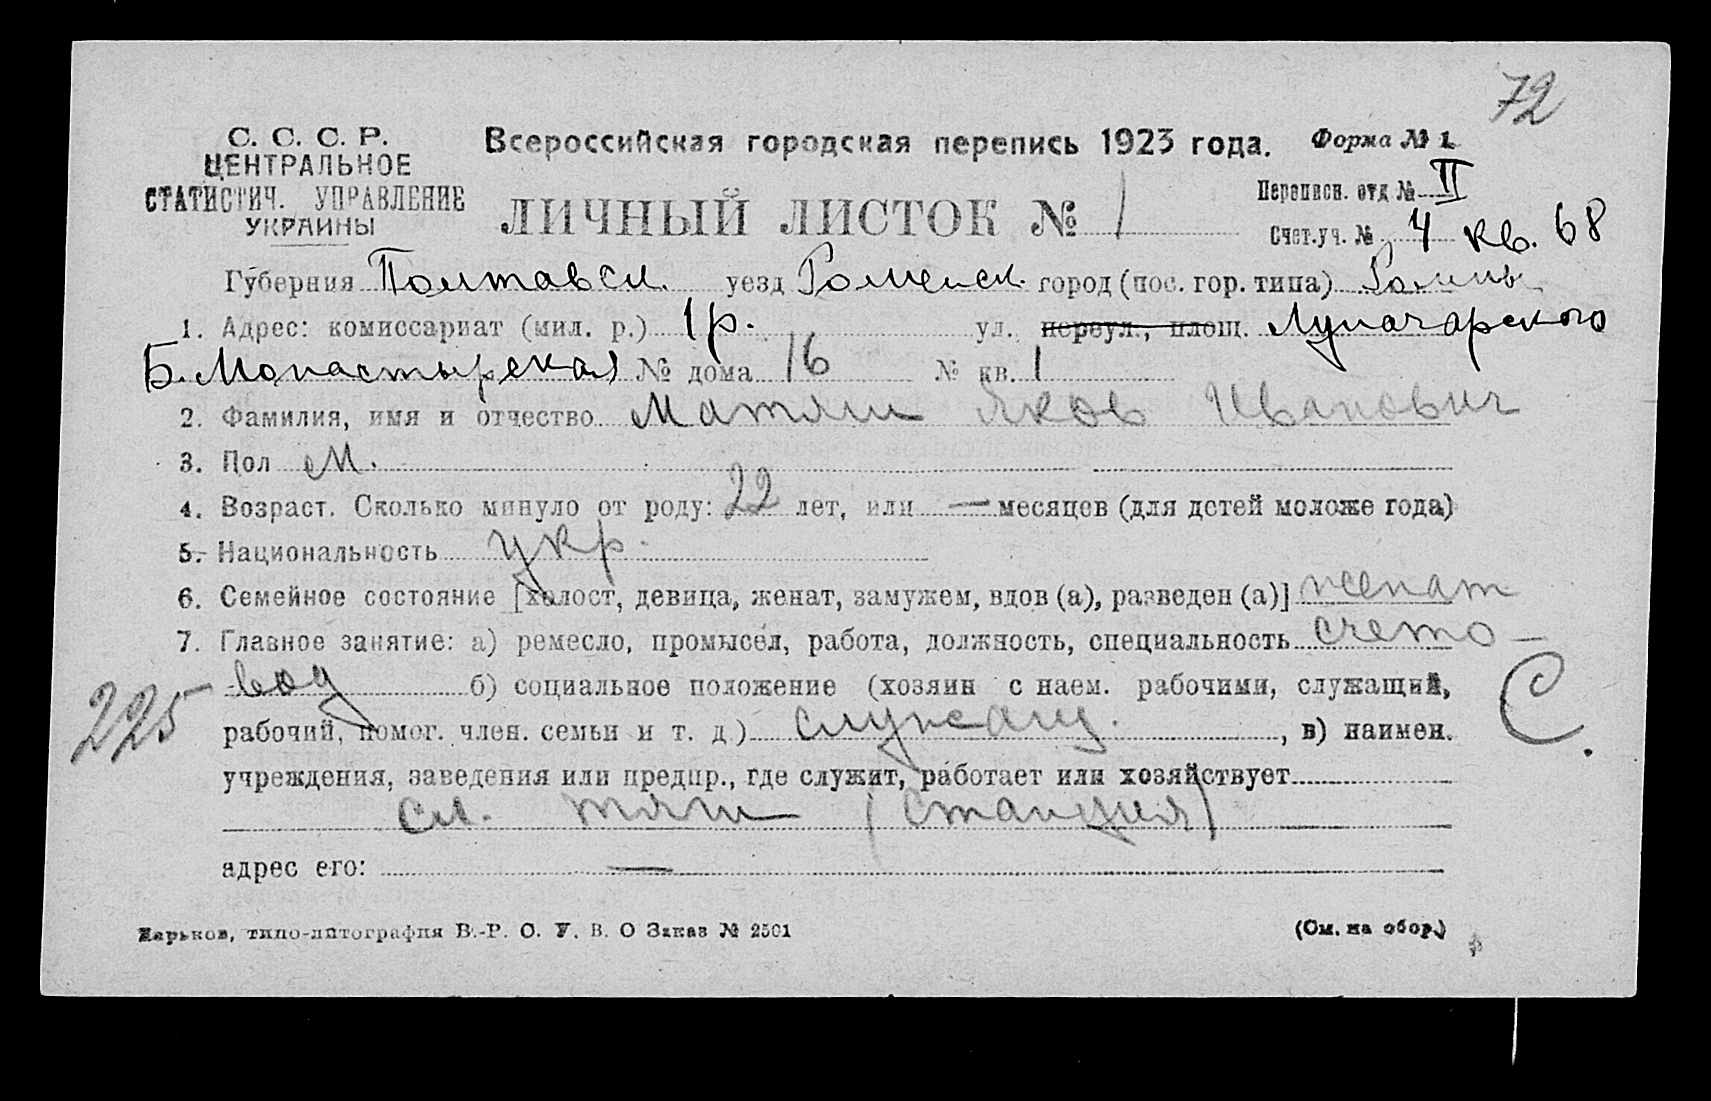 72
С. С. С. Р.
ЦЕНТРАЛЬНОЕ
СТАТИСТИЧ. УПРАВЛЕНИЕ
УКРАИНЫ
Всероссийская городская перепись 1923 года.
Форма № 1
ЛИЧНЫЙ ЛИСТОК № 1
Переписн. отд № II
Счет.уч. № 4 кв. 68
Губерния Полтавск. уезд Роменск. город (пос. гор. типа) Ромны
1. Адрес: комиссариат (мил. р.) 1 р. ул. переул., площ. Луначарского
Б. Монастырская № дома 16 № кв. 1
2. Фамилия, имя и отчество Матяш Яков Иванович
3. Пол М.
4. Возраст. Сколько минуло от роду: 22 лет, или — месяцев (для детей моложе года)
5. Национальность укр.
6. Семейное состояние [холост, девица, женат, замужем, вдов (а), разведен (а)] женат
7. Главное занятие: а) ремесло, промысел, работа, должность, специальность счето-
вод б) социальное положение (хозяин с наем. рабочими, служащий,
225
С.
рабочий, помог. член. семьи и т. д.) служащ. , в) наимен.
учреждения, заведения или предпр., где служит, работает или хозяйствует
сл. (станция)
адрес его: —
Харьков, типо-литография В.-Р. О. У. В. О Заказ № 2501
(См. на обор.)